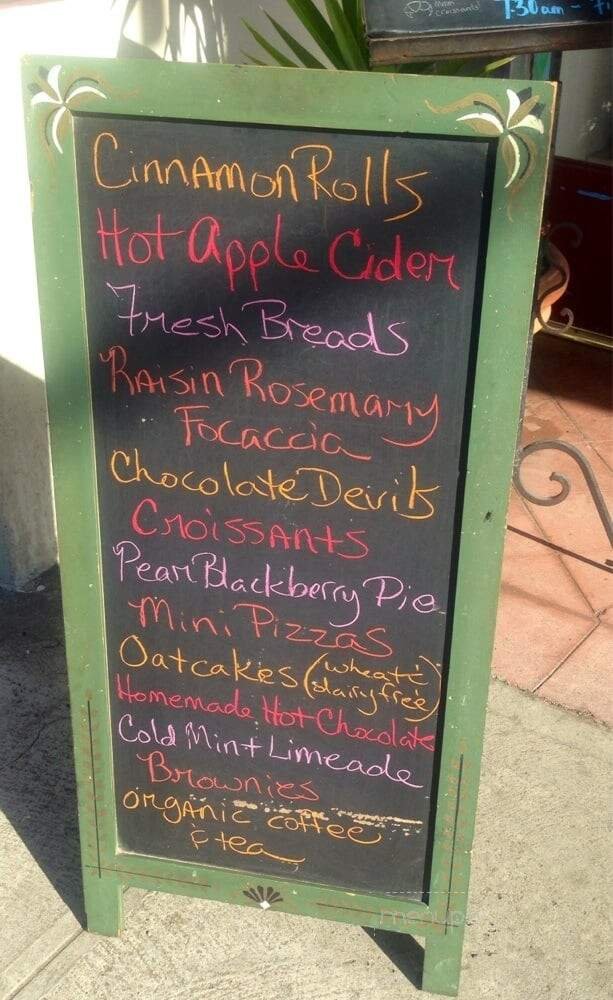 7:30 am -
Cinnamon Rolls
Hot Apple Cider
Fresh Breads
Raisin Rosemary
Focaccia
Chocolate Devils
Croissants
Pear Blackberry Pie
Mini Pizzas
Oatcakes (wheat &
dairy free)
Homemade Hot Chocolate
Cold Mint Limeade
Brownies
organic coffee
& tea